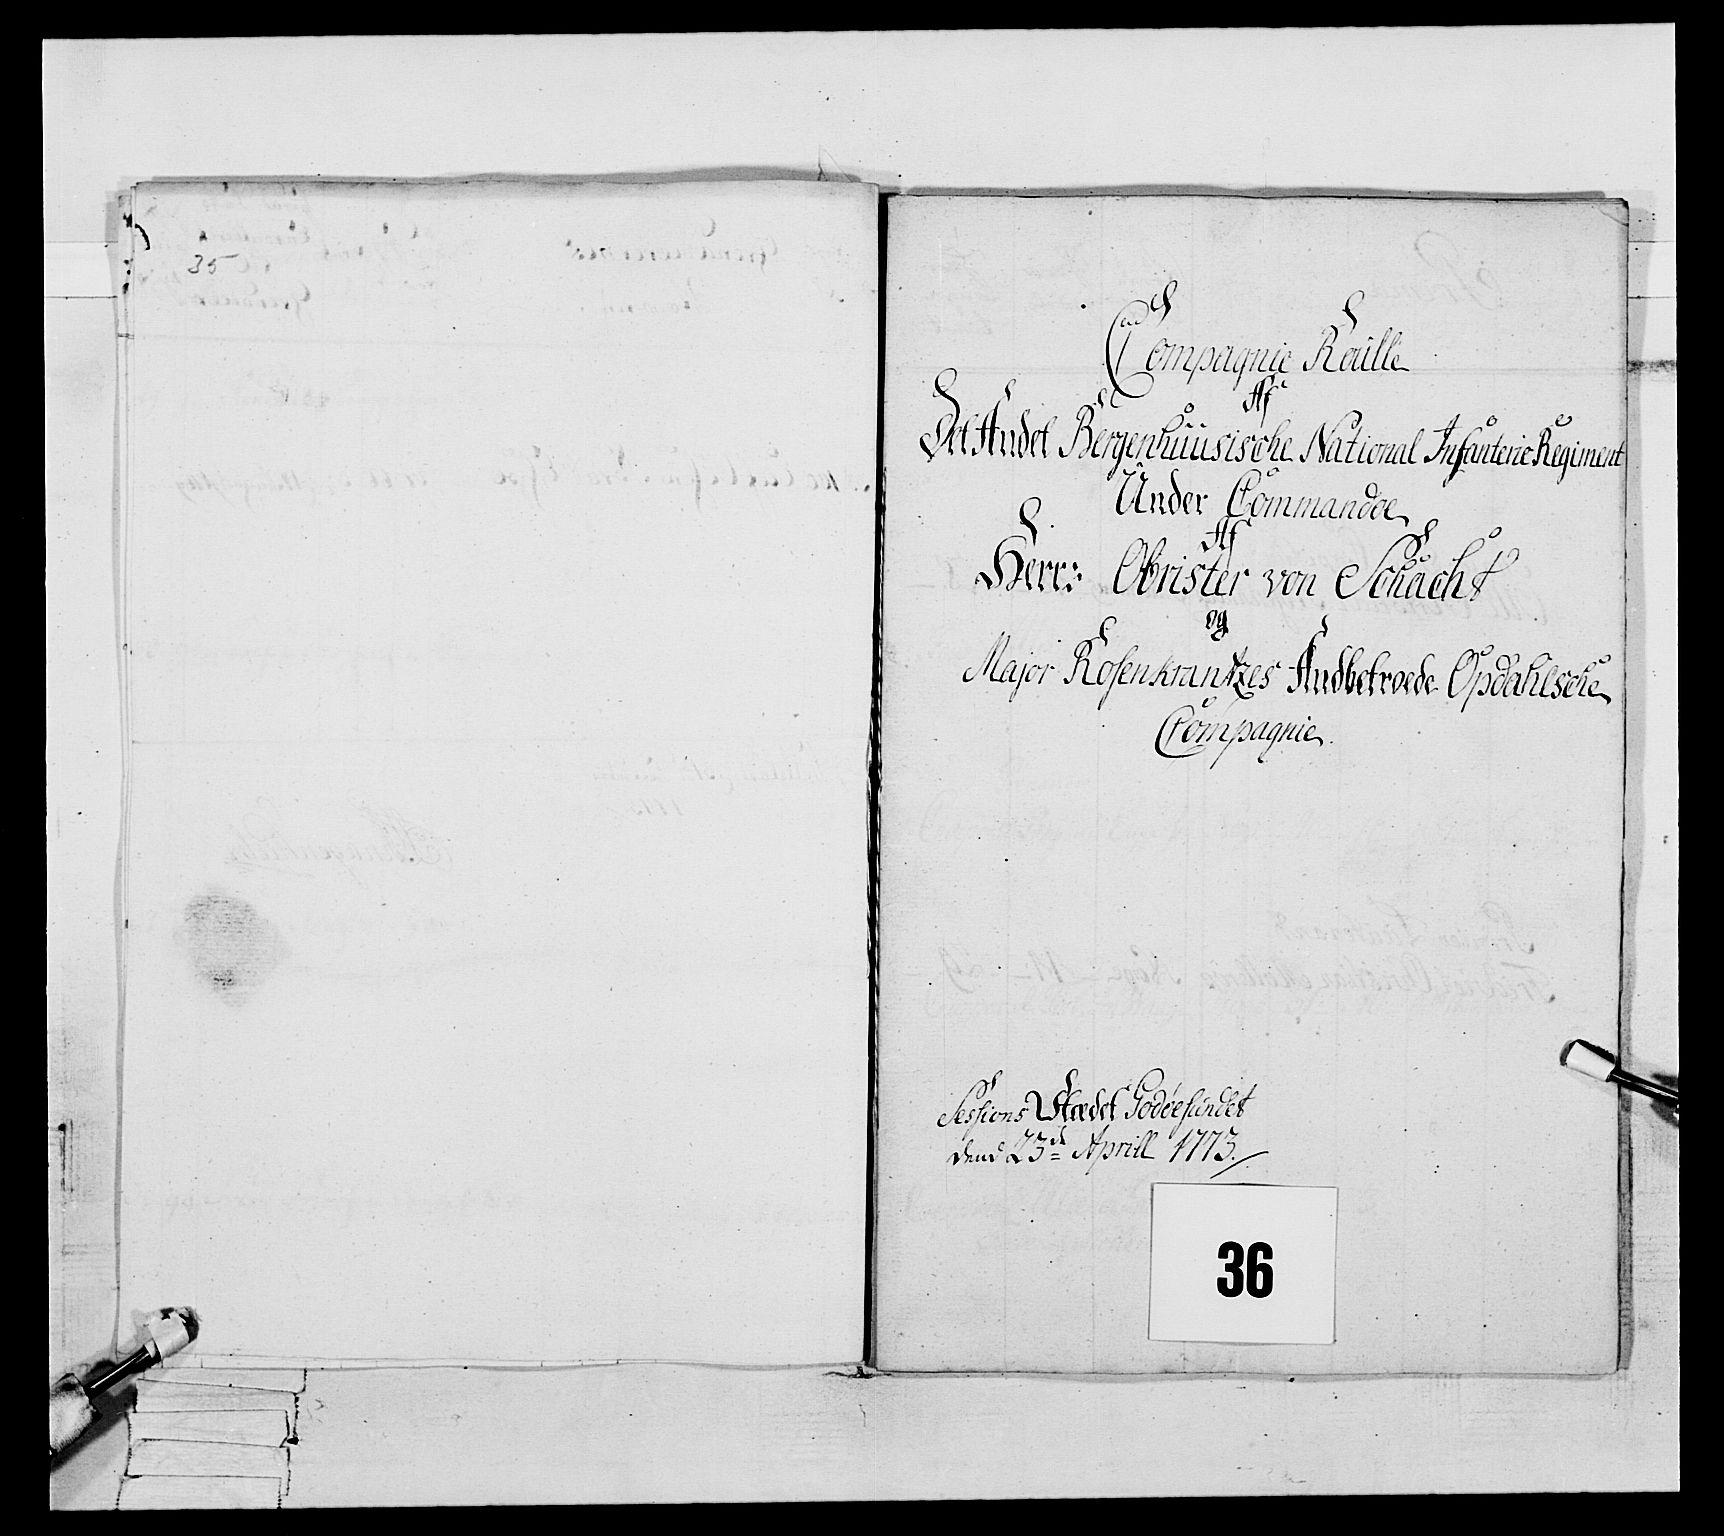 35
Compagnie Roulle
Af
Det Andet Bergenhuusische National Infanterie Regiment
Under Commandoe
Af
Herr: Obrister von Schacht
og
Major Rosenkrantzes Andbetroede Opdahlsche
Compagnie.
Sessions Stædet Godøesundet
dend 23de Aprill 1773.
36